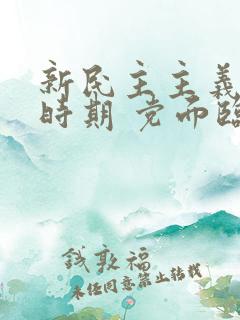 新民主主義
時期 党面臨
錢敦福
未经同意禁止转载